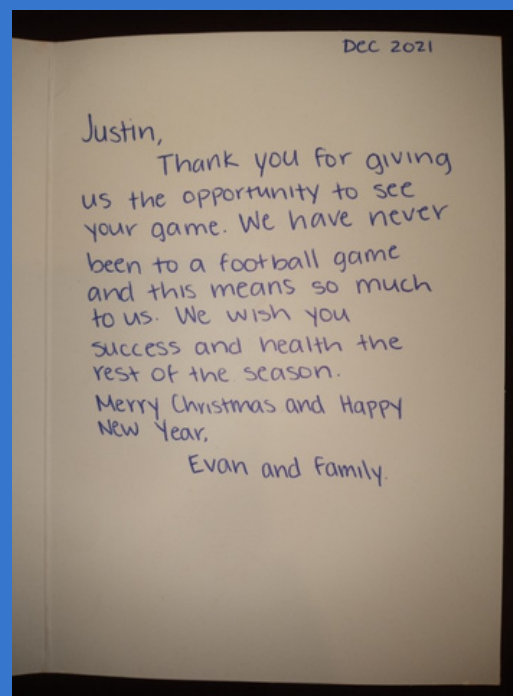 Dec 2021
Justin,
Thank you for giving
us the opportunity to see
your game. We have never
been to a football game
and this means so much
to us. We wish you
success and health the
rest of the season.
Merry Christmas and Happy
New Year.
Evan and Family.